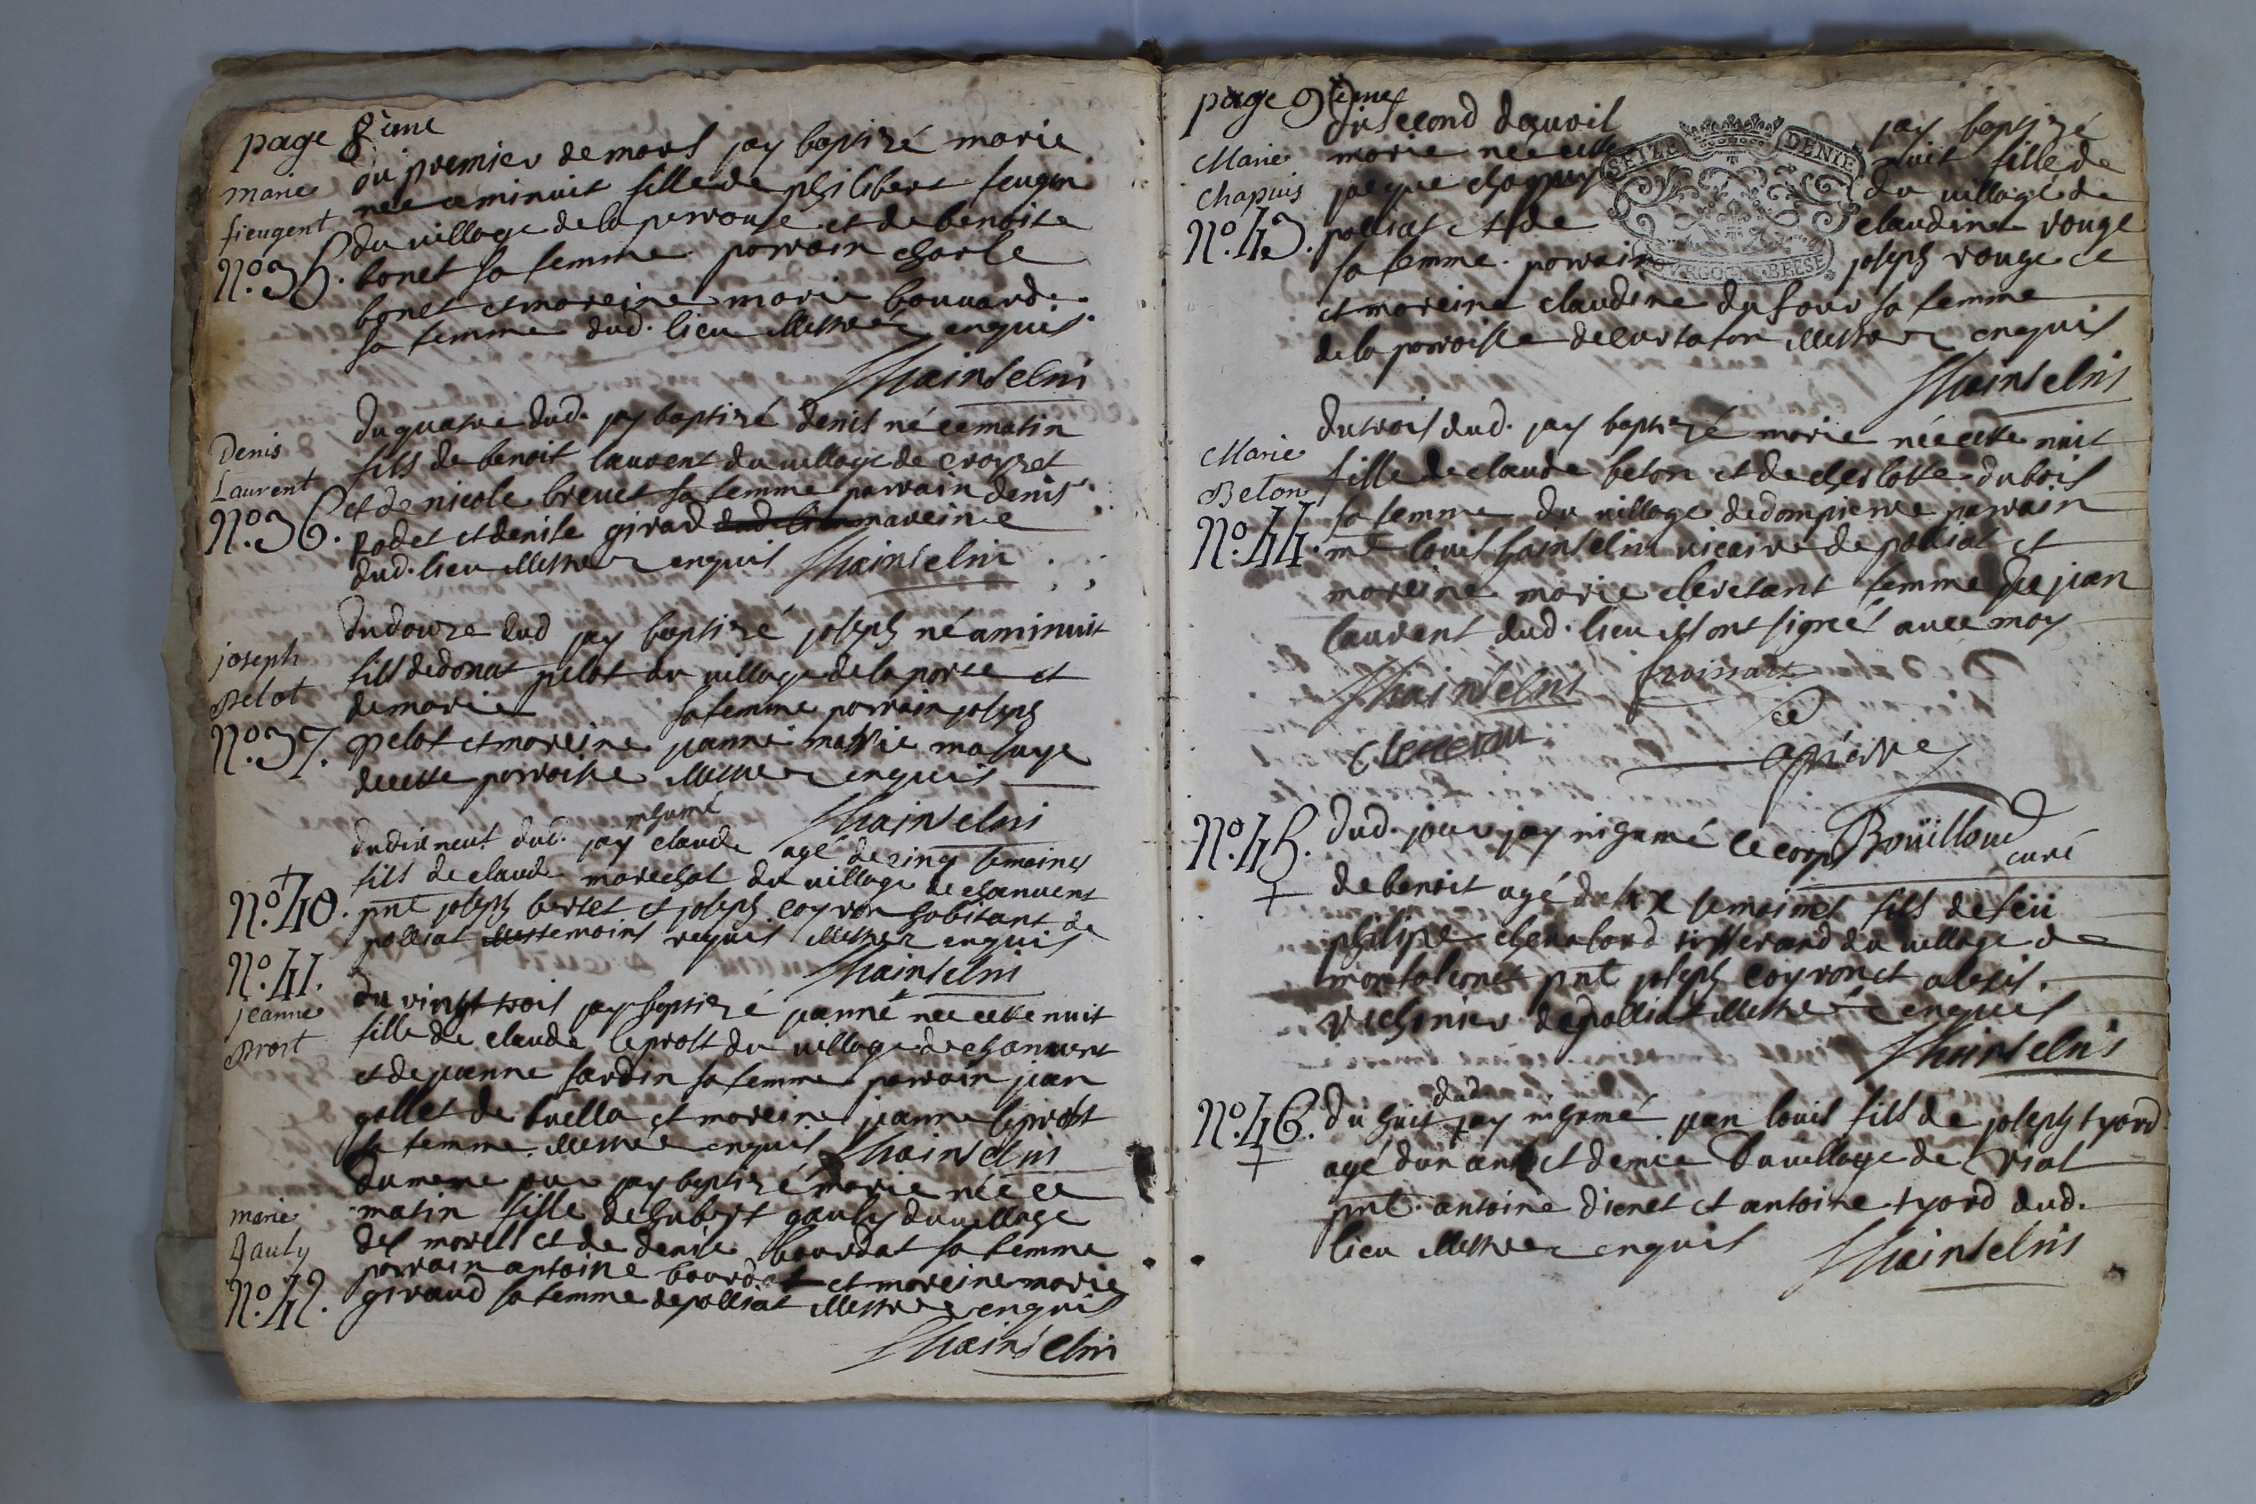 page 8ième
du premier de mars jay baptizé marie
marie
née a minuit fille de philibert feugen
fieugent
du village de la perrouse et de benoite
No. 35.
bonet sa femme parrain charle
bonet et mareine marie bouvard
sa femme dud. lieu illettrez enquis.
hainselin
du quatre dud. jay baptizé denis né ce matin
Denis
fils de benoit laurent du village de croyzet
Laurent
et de nicole brevet sa femme parrain denis
No. 36.
podet et denise girard dud. lieu mareine
dud. lieu illettrez enquis hainselin
du douze dud jay baptizé joseph né a minuit
joseph
fils de donat pelot du village de la porte et
Pelot
de marie sa femme parrain joseph
No. 37.
pelot et mareine janne marie
de cette parroisse illettrez enquis
hainselin
inhumé
du dixneuf dud. jay claude agé de cinq semaines
fils de claude marechal du village de chanvent
No. 40.
pnt joseph bertet et joseph coyron habitant de
polliat temoins requis illettrez enquis
hainselin
No. 41.
du vingt trois jay baptizé janne née cette nuit
jeanne
fille de claude leprost du village de chanvent
Prost
et de janne jardin sa femme parrain jean
gollet de buella et mareine janne leprost
sa femme illettrez enquis hainselin
du meme jour jay baptizé marie née ce
marie
matin fille de hubert gauly du village
Gauly
des morels et de denise bourdat sa femme
parrain antoine bourdat et mareine marie
No. 42.
giraud sa femme de polliat illettrez enquis
hainselin
page 9ième
du second dauril jay baptizé
Marie
marie née cette nuit fille de
Chapuis
jacque chapuis du village de
No. 43.
polliat et de claudine rouge
sa femme. parrain joseph rouge
et mareine claudine dufour sa femme
de la parroisse de curtafon illettrez enquis
hainselin
du trois dud. jay baptizé marie née cette nuit
Marie
fille de claude beton et de charlotte dubois
Beton
sa femme du village de dompierre parrain
No. 44.
mre louis hainselin vicaire de polliat et
mareine marie femme de jean
laurent dud. lieu ils ont signés avec moy
hainselin
No. 45.
dud. jour jay inhumé le corps
Boüilloud
curé
de benoit agé de six semaines fils de feü
philipe chevalard tisserand du village de
montalonet pnt joseph coyron et alexis
vichinier de polliat illettrez enquis
hainselin
dud
No. 46.
du huit jay inhumé jean louis fils de joseph tyord
agé dun ans et demie du village de vial
pnt. antoine dienet et antoine tyord dud.
lieu illettrez enquis hainselin
SEIZE DENIE
BOVRGOGNE BRESSE